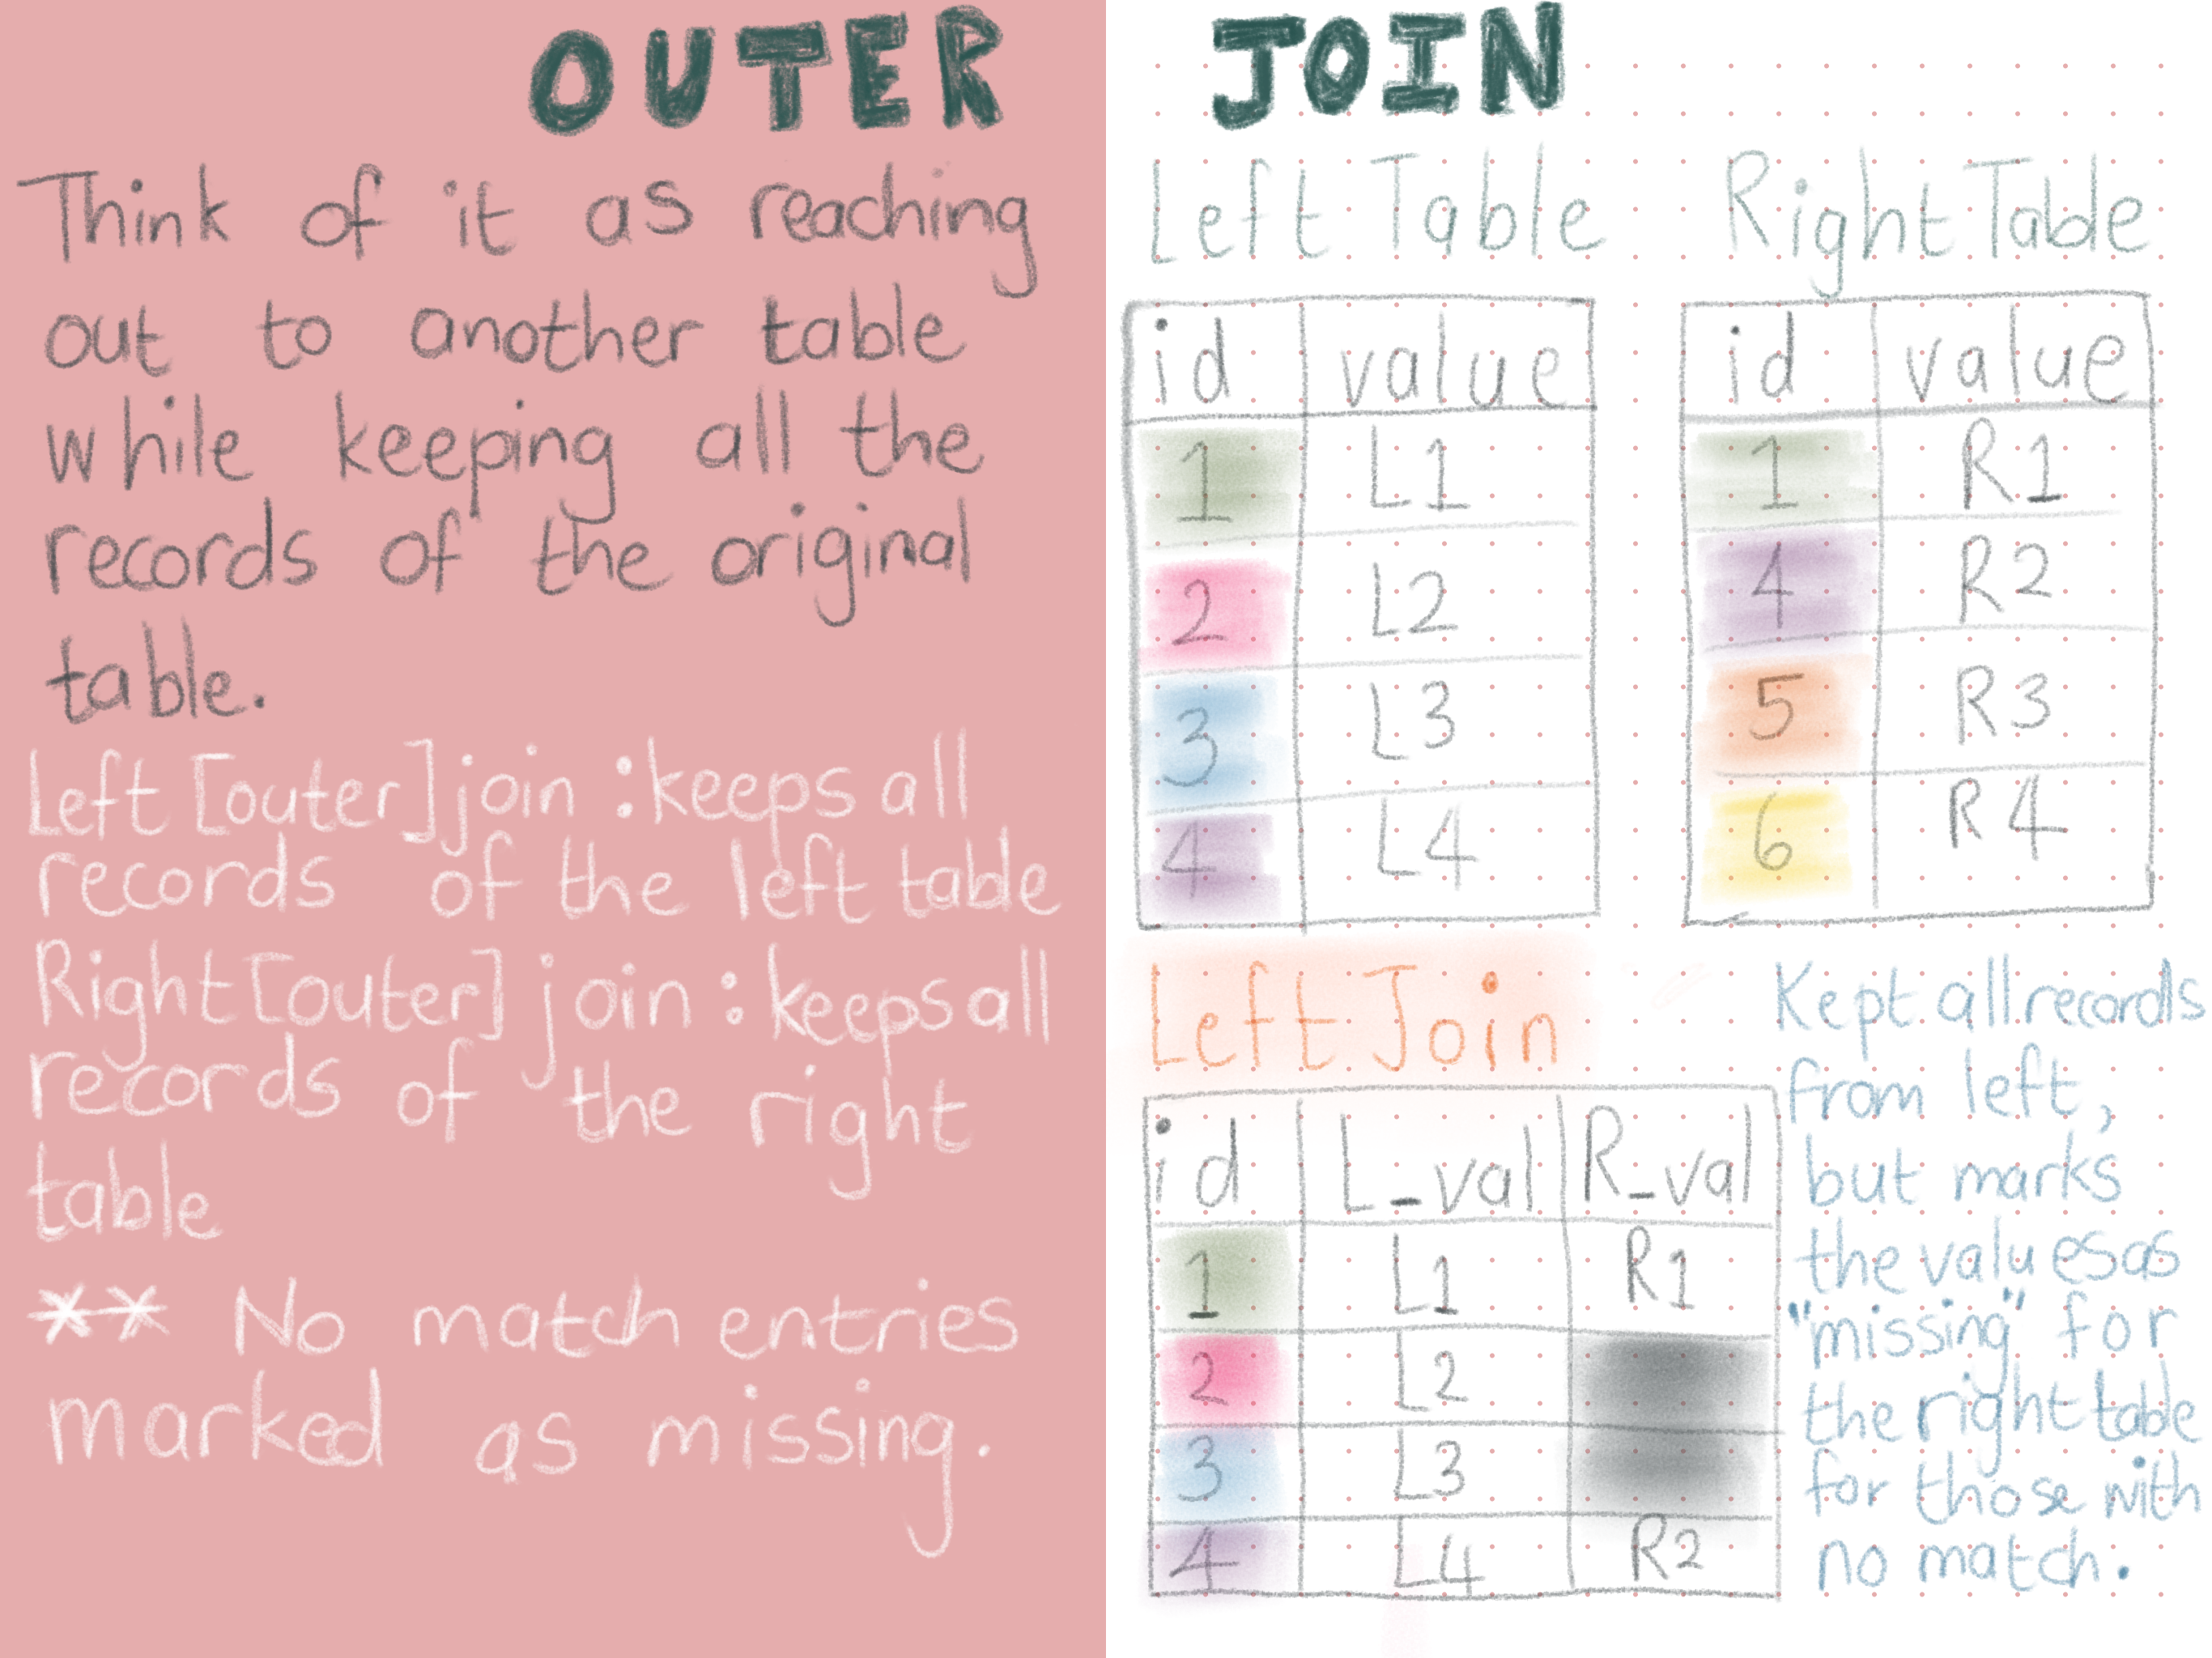 OUTER JOIN
Think of it as reaching
out to another table
while keeping all the
records of the original
table.
Left [outer] join : keeps all
records of the left table
Right [outer] join : keeps all
records of the right
table
** No match entries
marked as missing.
Left Table
id value
1 L1
2 L2
3 L3
4 L4
Right Table
id value
1 R1
4 R2
5 R3
6 R4
Left Join
id L_val R_val
1 L1 R1
2 L2
3 L3
4 L4 R2
Kept all records
from left,
but marks
the values as
"missing" for
the right table
for those with
no match.